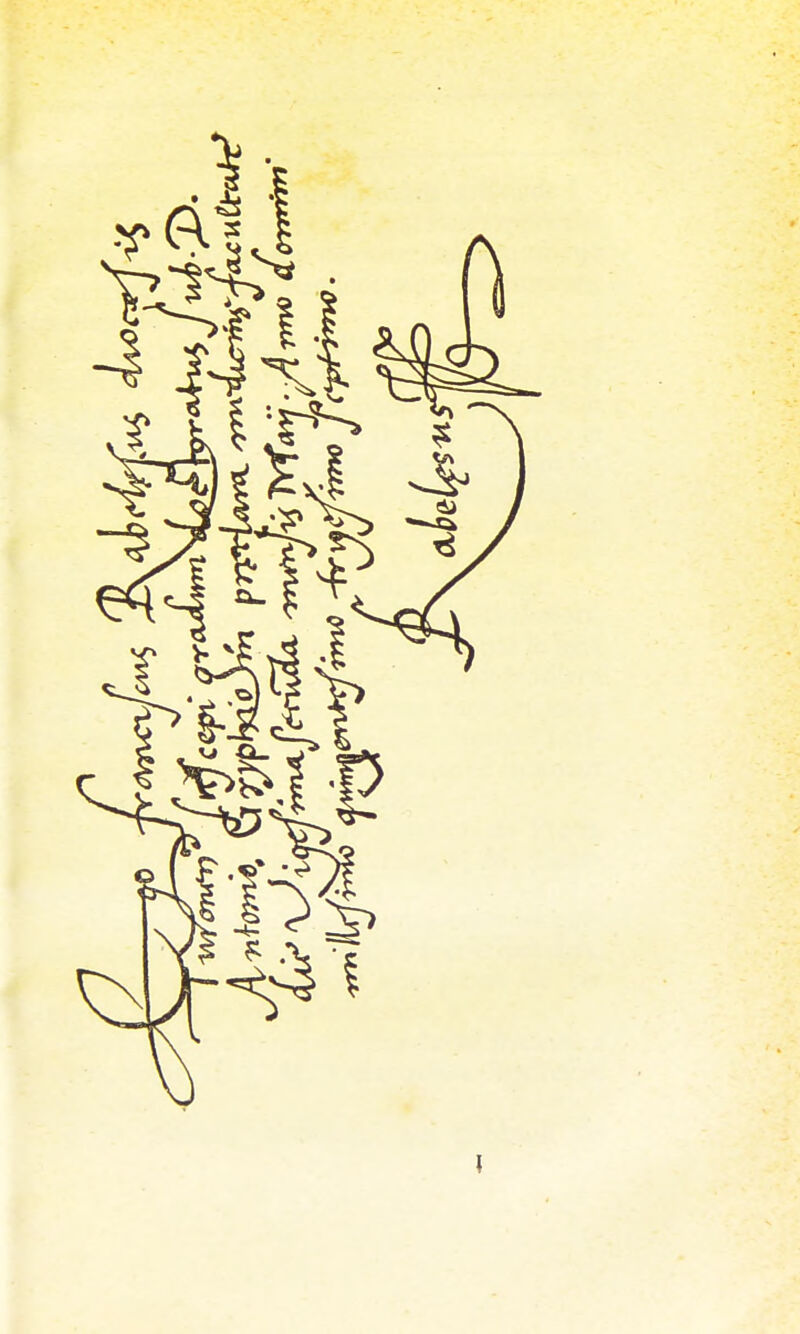 Ego franciscus Rabelęsus diocesis
Turonen suscepi gradum doctoratus sub D.
Antonio Gryphio in preclara medicine facultate
die Vigesima secunda mensis Maij. Anno domini
millesimo quingentesimo trigesimo septimo.
Rabelęsus
1